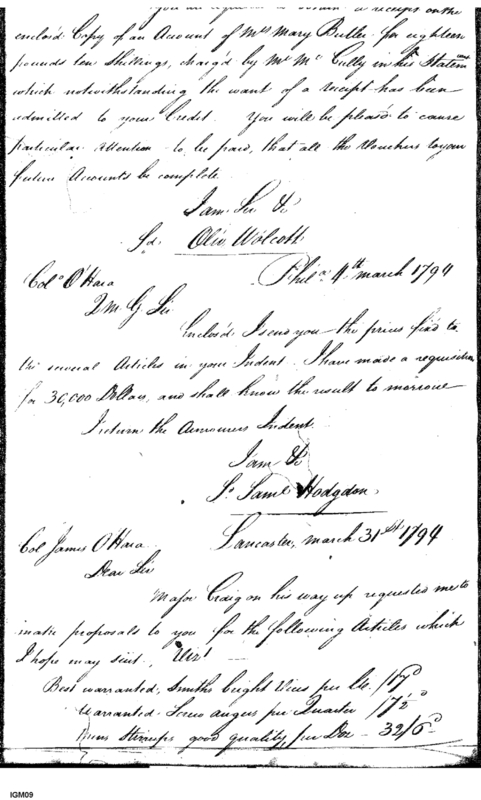 You are requested to obtain a receipt on the
enclos'd Copy of an Account of Mrs Mary Butler for eighteen
pounds ten Shillings, charg'd by Mr McCully in his Statem
which notwithstanding the want of a receipt has been
admitted to your Credit. You will be please to cause
particular attention to be paid, that all the Vouchers to your
future Accounts be complete
I am Sir &c
Sd. Oliv Wolcott
Phila. 4th march 1794
Colo O'Hara
Q M G Sir
Enclos'd I send you the prices fix'd to
the several Articles in your Indent. I have made a requisition
for 30,000 Dollars, and shall know the result to morrow
I return the Armourers Indent
I am &c
Sd Saml Hodgdon
Lancaster, march 31st 1794
Col James O'Hara
Dear Sir
Major Craig on his way up requested me to
make proposals to you for the following Articles which
I hope may suit, Viz
Best warranted, Smiths bright Vices per lb. /17d
Warranted Screw augers per Quarter /7½d
Mens Stirrups good quality, per Doz - 32/6d
IGM09